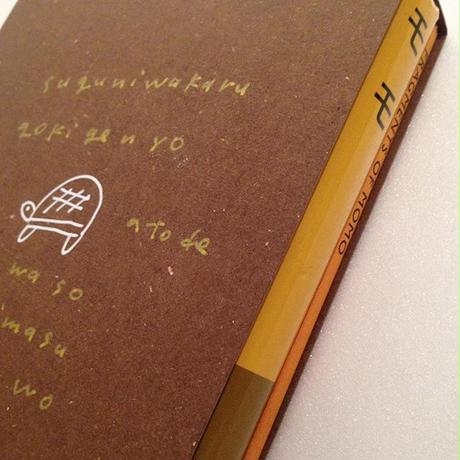 suguniwakaru
gokigenyo
atode
waso
imasu
wo
モモ
FRAGMENTS OF MOMO